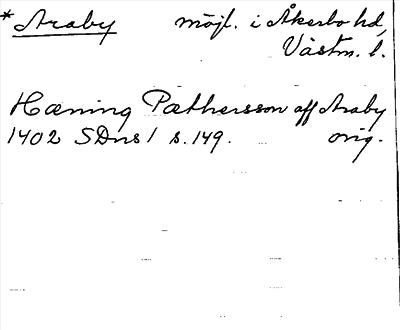 * Araby möjl. i Åkerbo hd,
Västm. l.
Hæning Pæthersson aff Araby
1402 SDns 1 s. 149. orig.